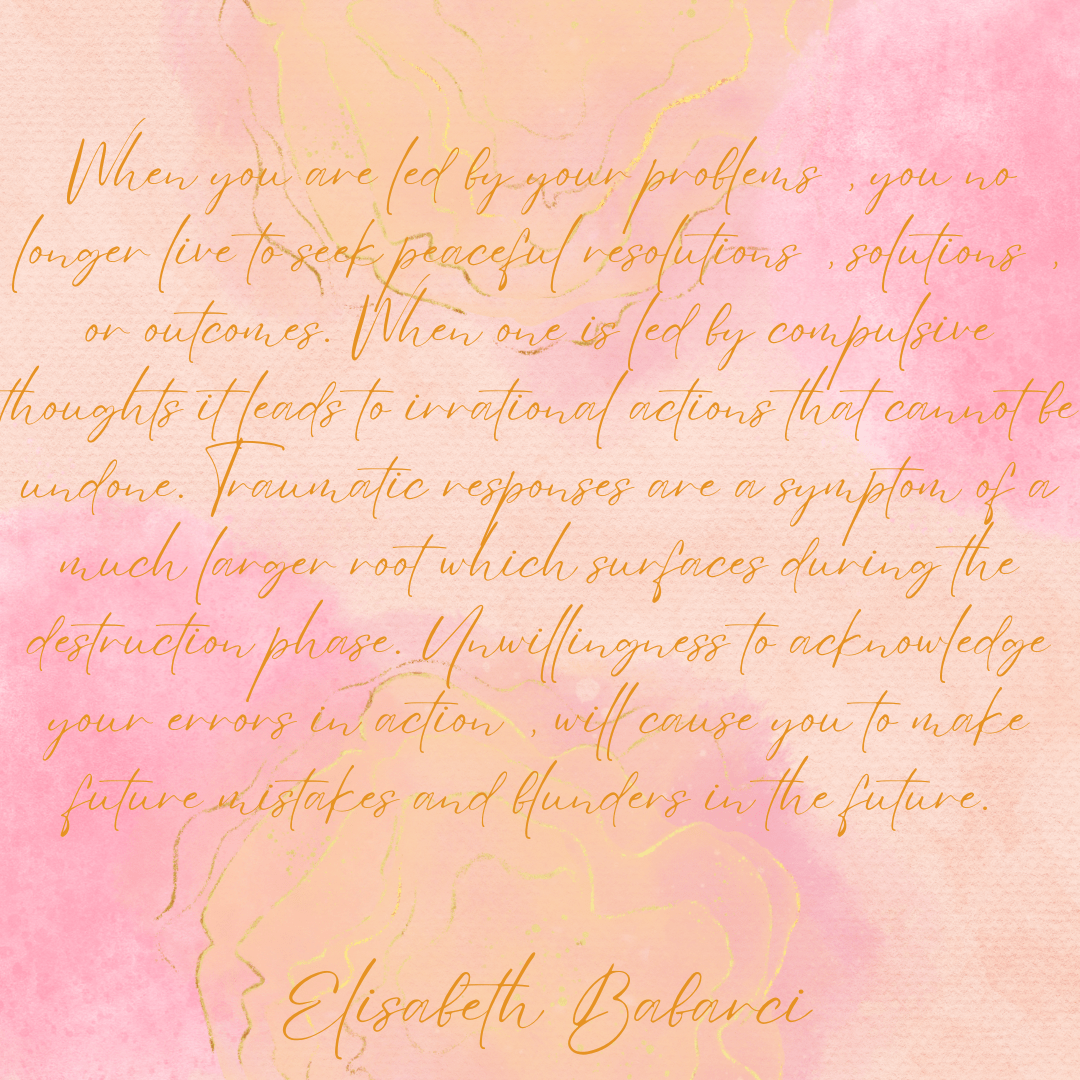 When you are led by your problems , you no
longer live to seek peaceful resolutions , solutions ,
or outcomes. When one is led by compulsive
thoughts it leads to irrational actions that cannot be
undone. Traumatic responses are a symptom of a
much larger root which surfaces during the
destruction phase. Unwillingness to acknowledge
your errors in action , will cause you to make
future mistakes and blunders in the future.
Elisabeth Babarci